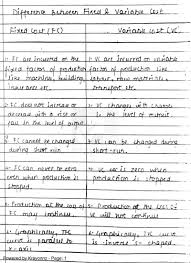 Difference Between Fixed & Variable Cost
Fixed Cost (FC)
Variable Cost (VC)
FC are incurred on the fixed factor of production like machine, building, insurance etc.
VC are incurred on variable factor of production like labour, raw materials, transport etc.
FC does not increase or decrease with a rise or fall in the level of output.
VC changes with change in the level of output.
FC cannot be changed during short run.
VC can be changed during short run.
FC can never be zero even when production is stopped.
VC is zero when production is stopped.
Production at the loss of FC may continue.
Production at the loss of VC will not continue
Graphically, TFC curve is parallel to x-axis
Graphically, TVC curve is inverse 's' shaped.
Powered by Kravoriz - Page: 1